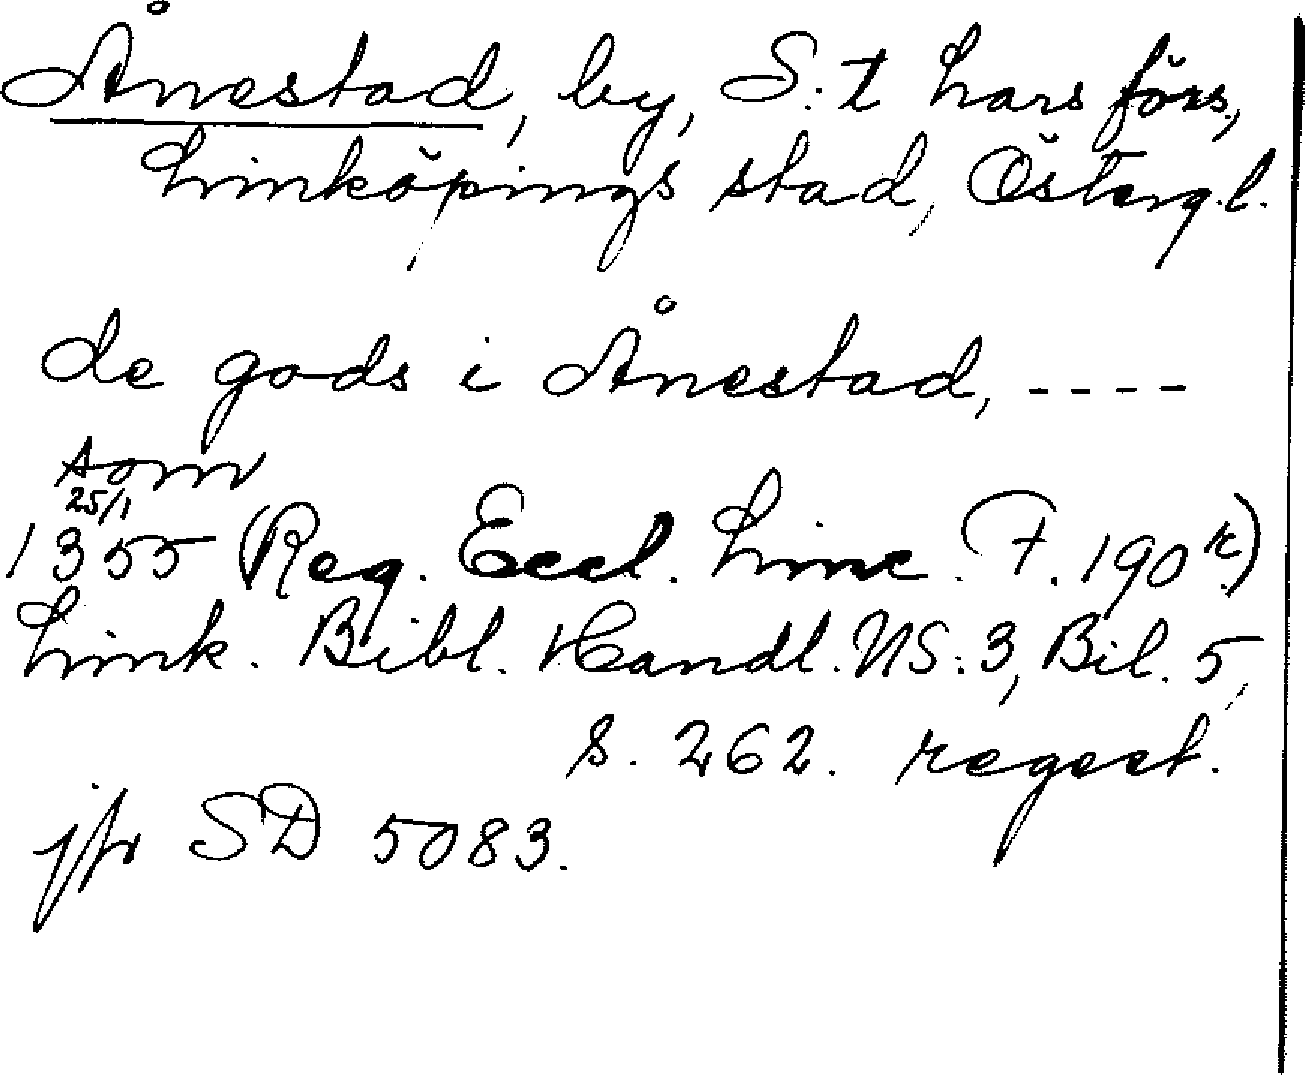 Ånestad, by, S:t Lars förs.,
Linköpings stad, Östergl.
de gods i Ånestad, ----
som
25/1
1355 (Reg. Eccl. Linc. F. 190 r.)
Link. Bibl. Handl. NS. 3, Bil. 5,
s. 262. regest.
jfr SD 5083.